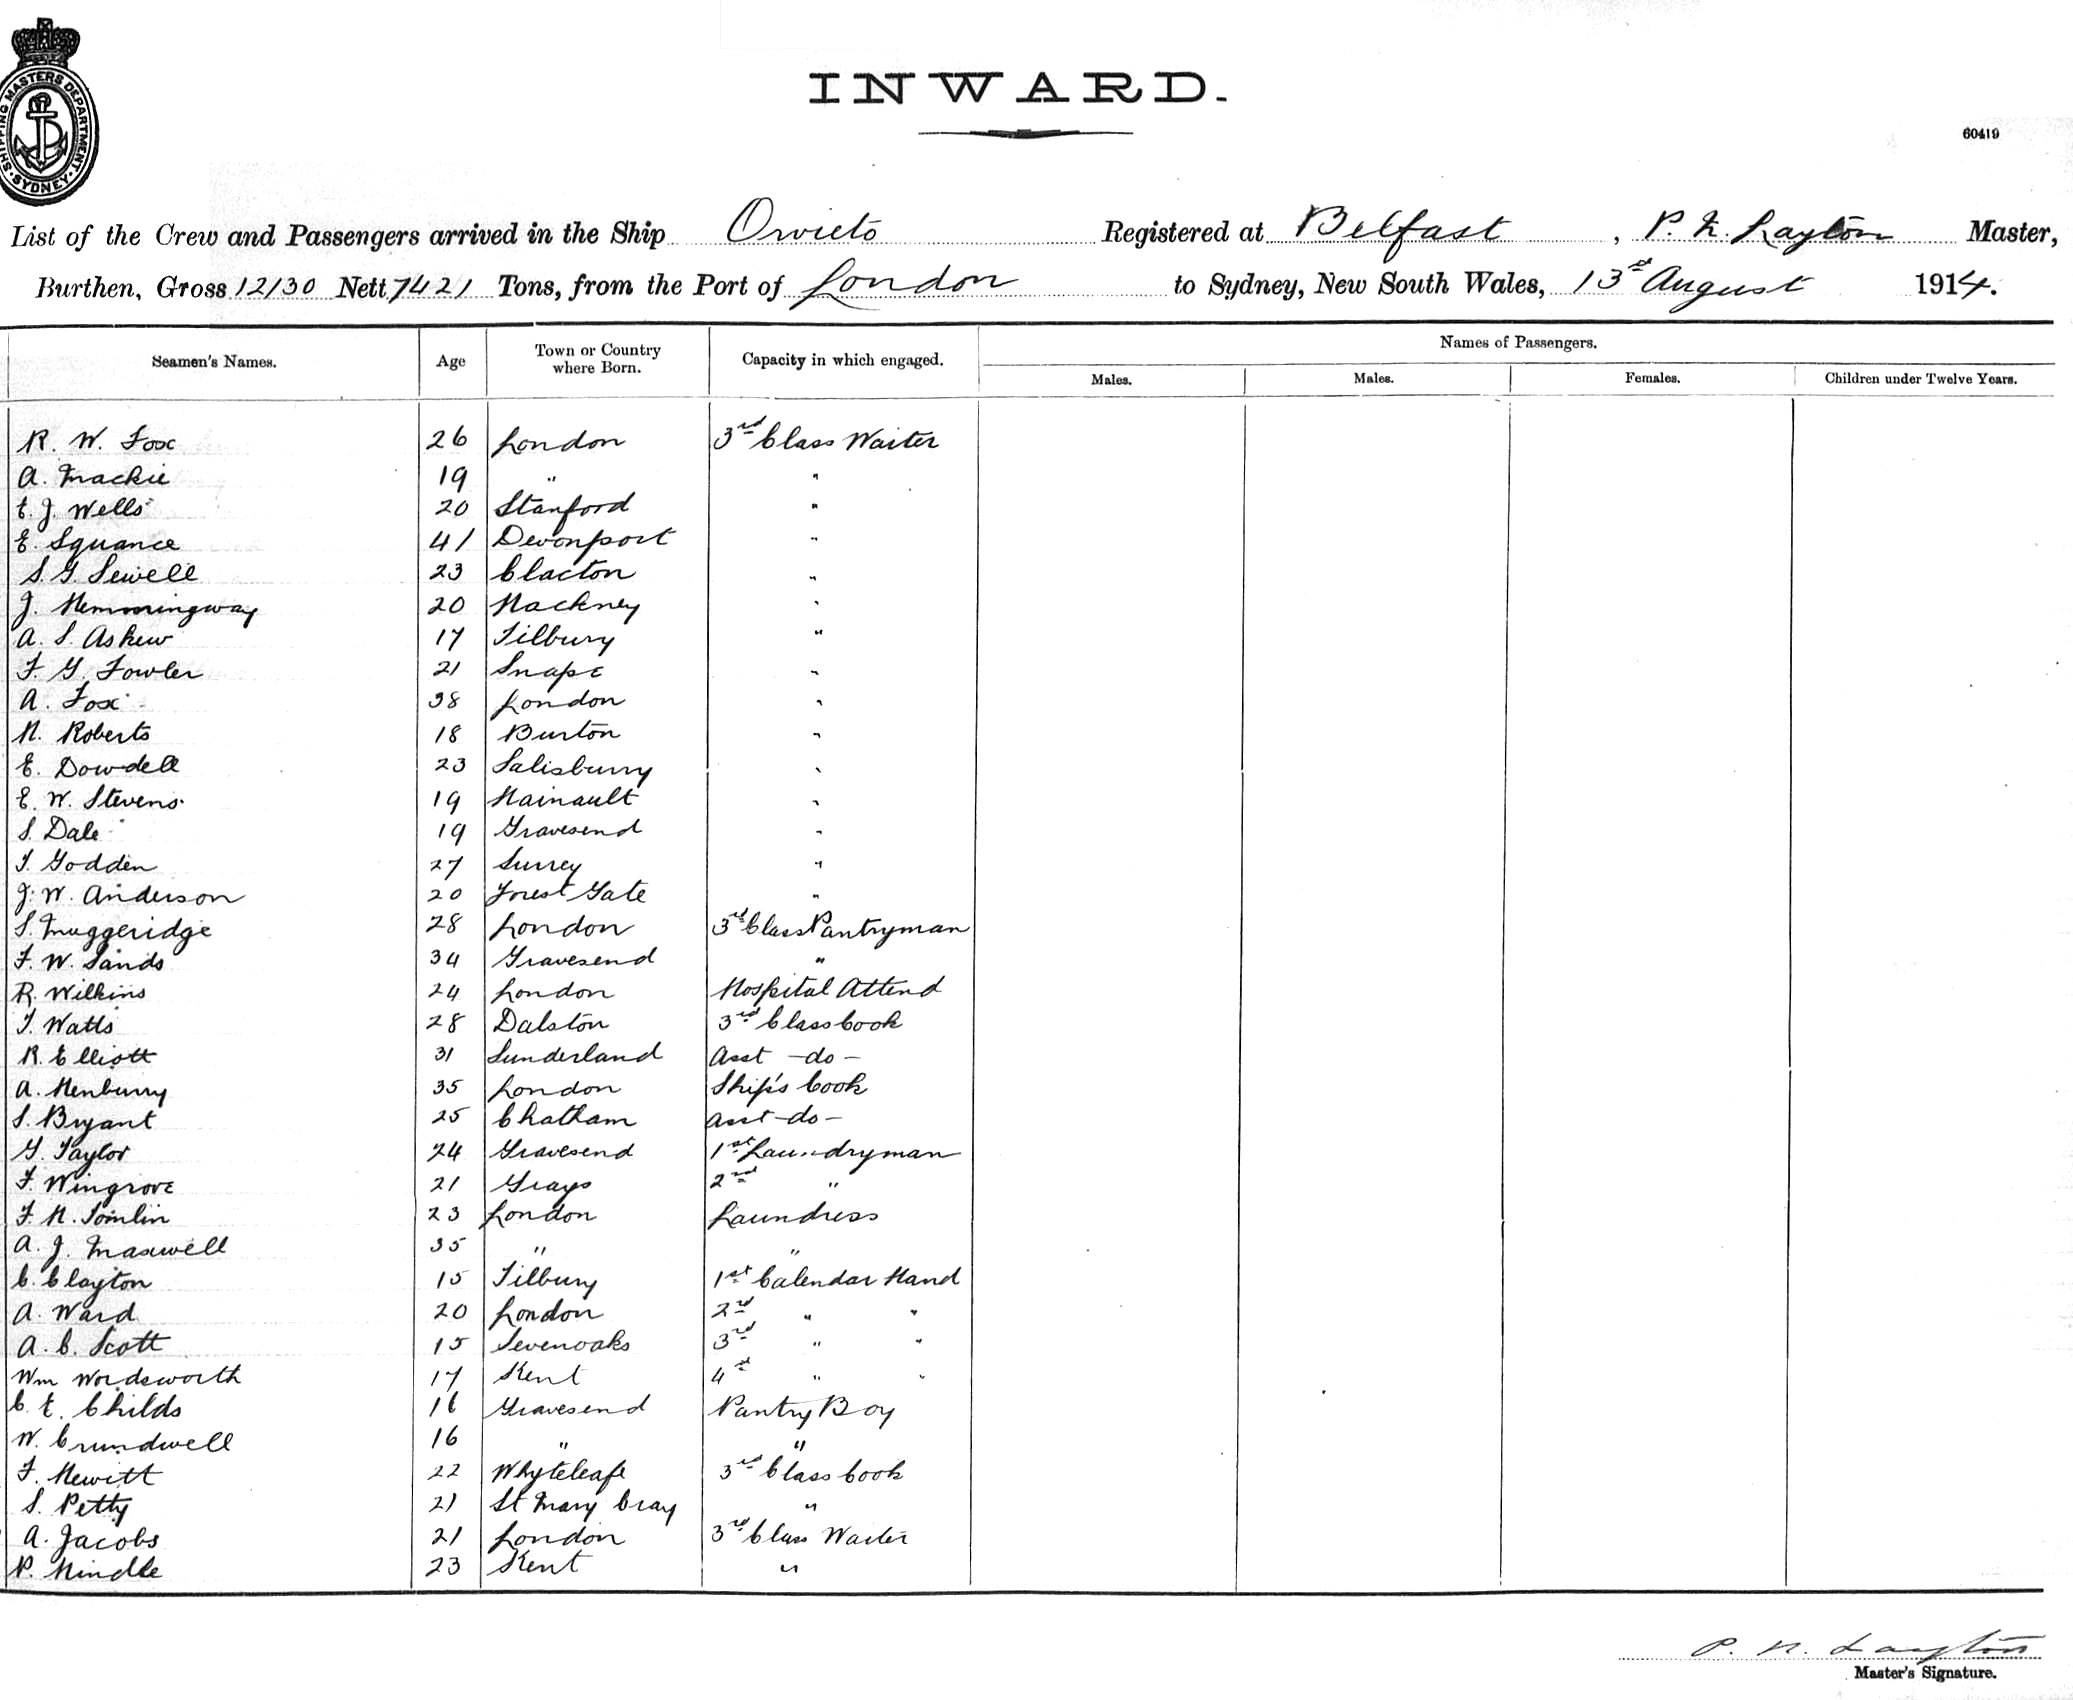 SHIPPING MASTERS DEPARTMENT. SYDNEY.
INWARD.
60419
List of the Crew and Passengers arrived in the Ship Orvieto Registered at Belfast, P. N. Layton Master,
Burthen, Gross 12130 Nett 7421 Tons, from the Port of London to Sydney, New South Wales, 13th August 1914.
Seamen's Names. Age Town or Country where Born. Capacity in which engaged. Names of Passengers.
Males. Males. Females. Children under Twelve Years.
R. W. Fox 26 London 3rd Class Waiter
A. Mackie 19 " "
E. J. Wells 20 Stanford "
E. Squance 41 Devonport "
S. G. Sewell 23 Clacton "
J. Hemmingway 20 Hackney "
A. S. Askew 17 Tilbury "
F. G. Fowler 21 Snape "
A. Fox 38 London "
H. Roberts 18 Burton "
E. Dowdell 23 Salisbury "
E. W. Stevens 19 Hainault "
S. Dale 19 Gravesend "
T. Godden 27 Surrey "
J. W. Anderson 20 Forest Gate "
S. Muggeridge 28 London 3rd Class Pantryman
F. W. Sands 34 Gravesend "
R. Wilkins 24 London Hospital Attend
T. Watts 28 Dalston 3rd Class Cook
R. Elliott 31 Sunderland Asst -do-
A. Henbury 35 London Ship's Cook
S. Bryant 25 Chatham Asst -do-
G. Taylor 24 Gravesend 1st Laundryman
F. Wingrove 21 Grays 2nd "
F. H. Tomlin 23 London Laundress
A. J. Maxwell 35 " "
C. Clayton 15 Tilbury 1st Calendar Hand
A. Ward 20 London 2nd " "
A. C. Scott 15 Sevenoaks 3rd " "
Wm Wordsworth 17 Kent 4th " "
C. E. Childs 16 Gravesend Pantry Boy
W. Crundwell 16 " "
F. Hewitt 22 Whyteleafe 3rd Class Cook
S. Petty 21 St Mary Cray "
A. Jacobs 21 London 3rd Class Waiter
P. Hindle 23 Kent "
P. N. Layton
Master's Signature.